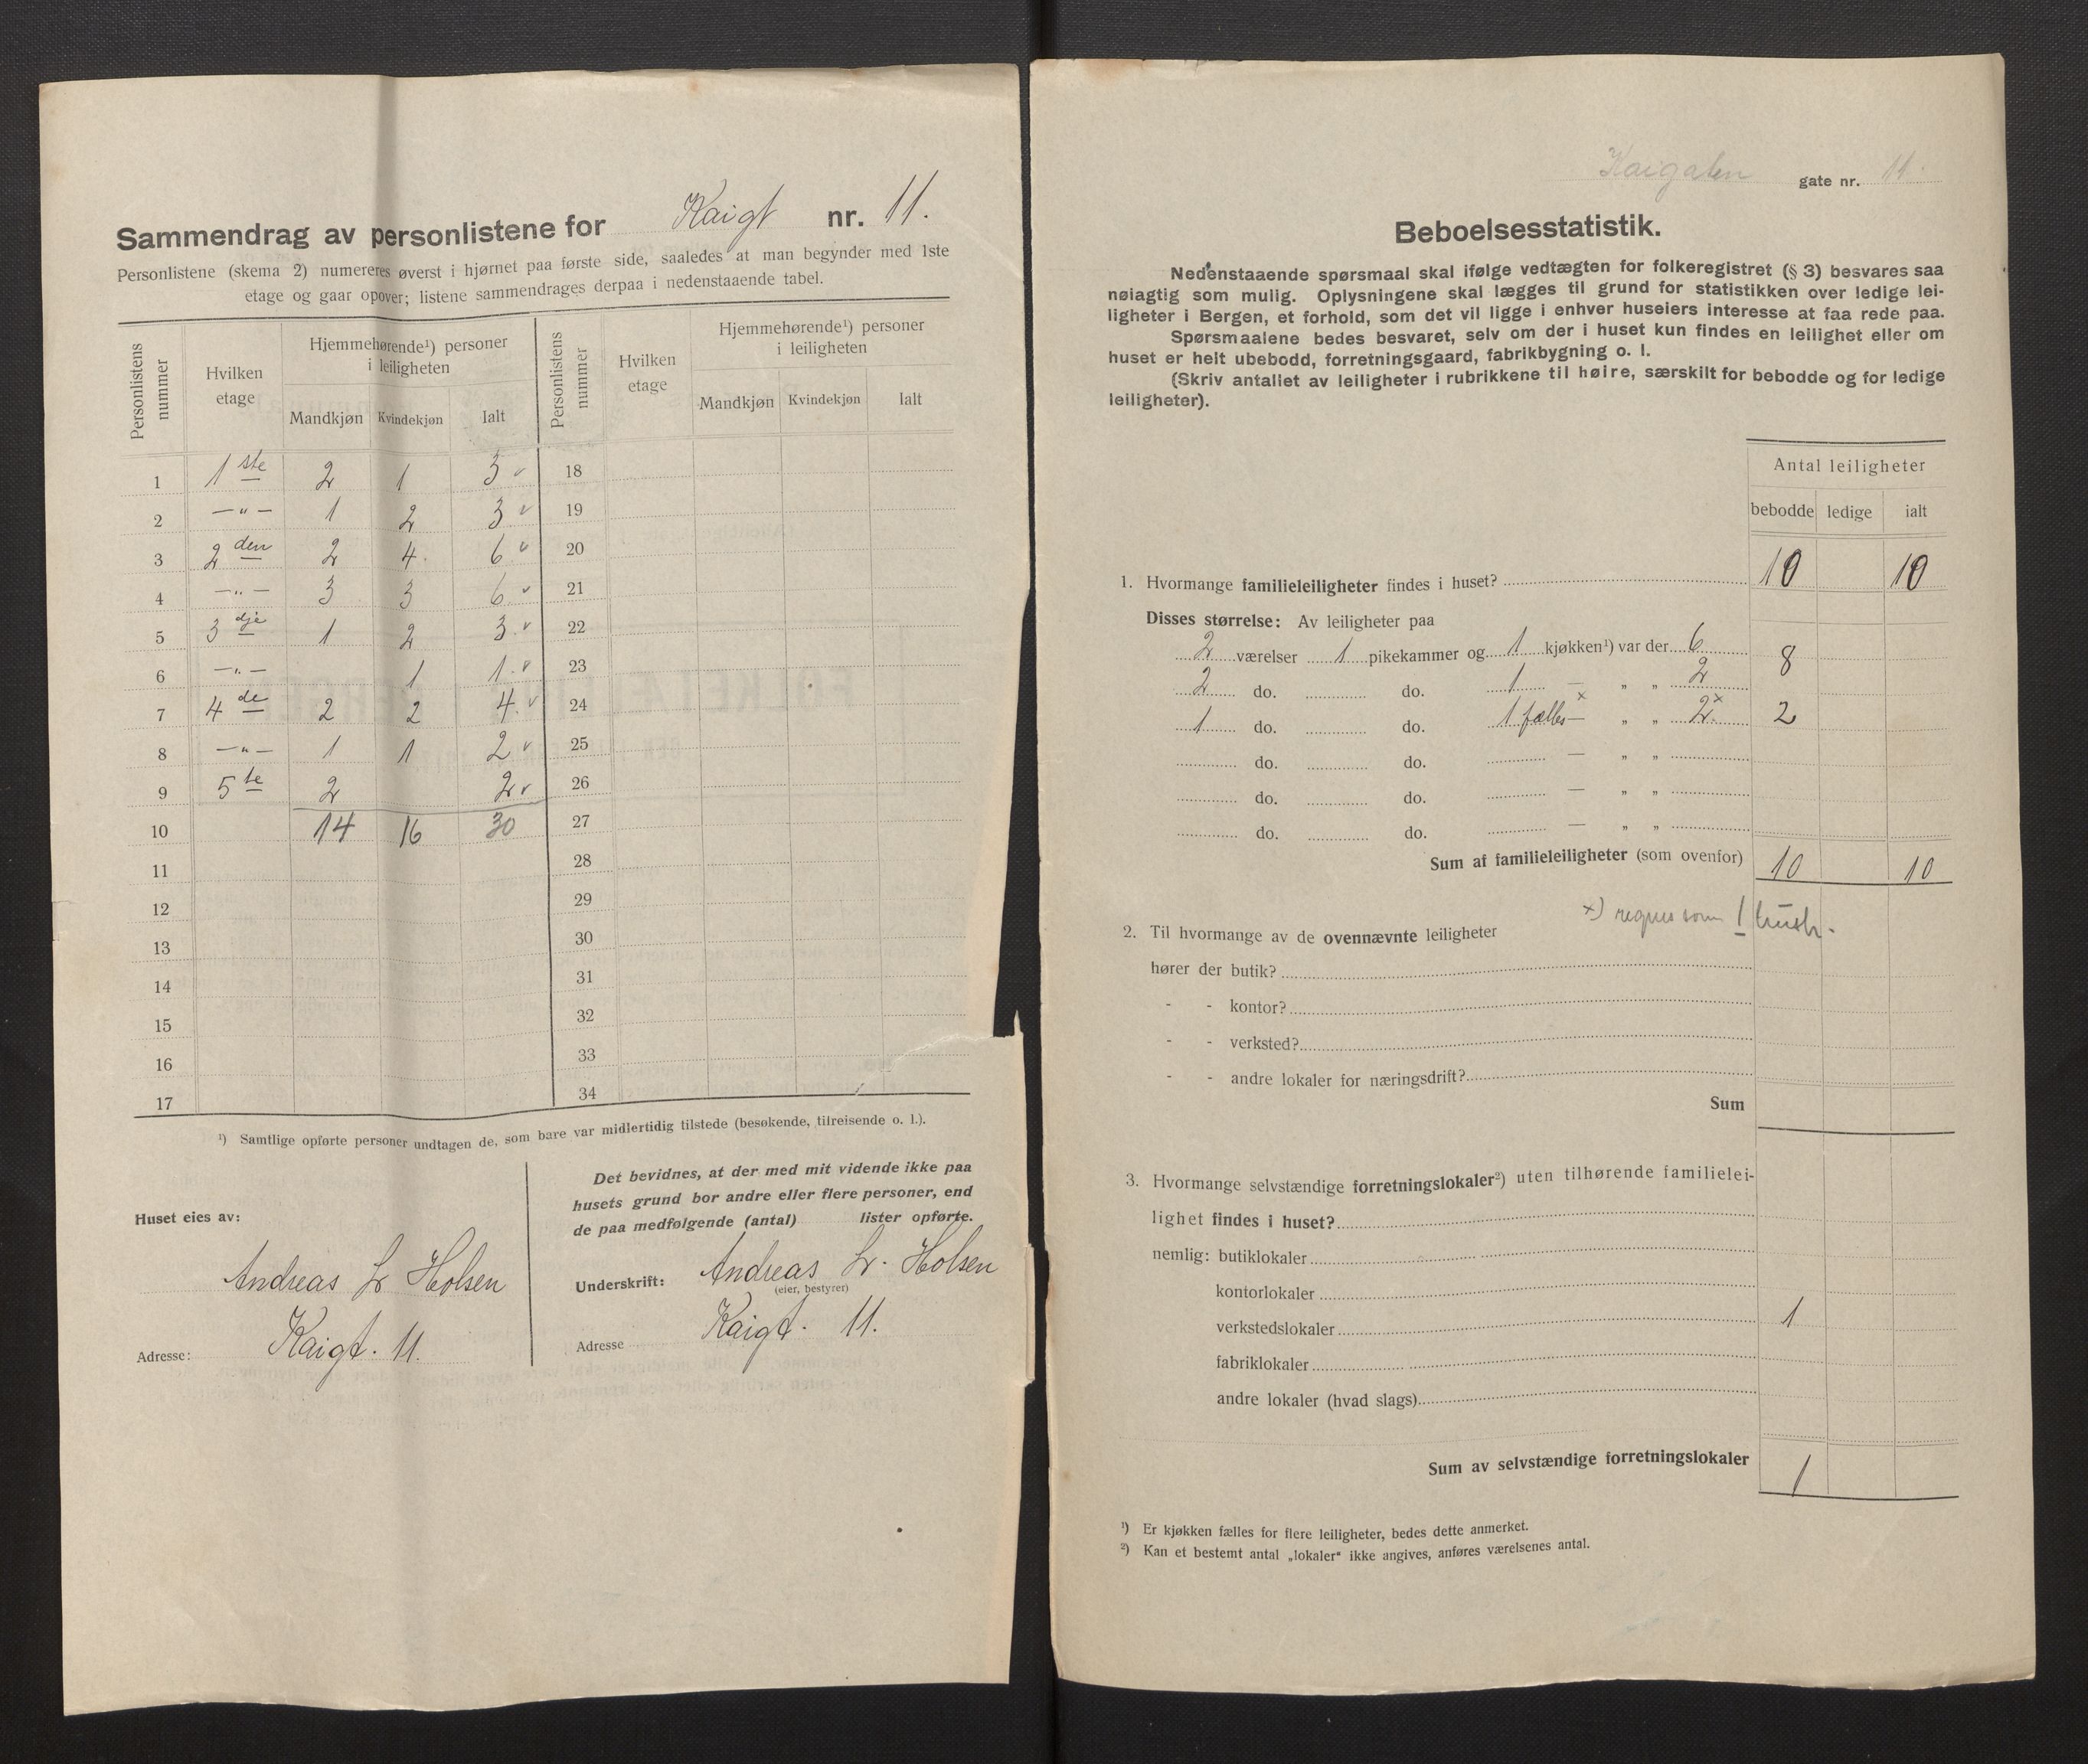 Sammendrag av personlistene for Kaigt nr. 11.
Personlistene (skema 2) numereres øverst i hjørnet paa første side, saaledes at man begynder med 1ste
etage og gaar opover; listene sammendrages derpaa i nedenstaaende tabel.
Personlistens nummer Hvilken etage Hjemmehørende¹) personer i leiligheten Mandkjøn Kvindekjøn Ialt
1 1 ste 2 1 3
2 —"— 1 2 3
3 2 den 2 4 6
4 —"— 3 3 6
5 3 dje 1 2 3
6 —"— 1 1
7 4 de 2 2 4
8 —"— 1 1 2
9 5 te 2 2
10 14 16 30
11
12
13
14
15
16
17
Personlistens nummer Hvilken etage Hjemmehørende¹) personer i leiligheten Mandkjøn Kvindekjøn Ialt
18
19
20
21
22
23
24
25
26
27
28
29
30
31
32
33
34
¹) Samtlige opførte personer undtagen de, som bare var midlertidig tilstede (besøkende, tilreisende o. l.).
Huset eies av:
Andreas Lr Holsen
Adresse: Kaigt. 11.
Det bevidnes, at der med mit vidende ikke paa
husets grund bor andre eller flere personer, end
de paa medfølgende (antal) lister opførte.
Underskrift: Andreas Lr. Holsen
(eier, bestyrer)
Adresse Kaigt. 11.
Kaigaten gate nr. 11.
Beboelsesstatistik.
Nedenstaaende spørsmaal skal ifølge vedtægten for folkeregistret (§ 3) besvares saa
nøiagtig som mulig. Oplysningene skal lægges til grund for statistikken over ledige lei-
ligheter i Bergen, et forhold, som det vil ligge i enhver huseiers interesse at faa rede paa.
Spørsmaalene bedes besvaret, selv om der i huset kun findes en leilighet eller om
huset er helt ubebodd, forretningsgaard, fabrikbygning o. l.
(Skriv antallet av leiligheter i rubrikkene til høire, særskilt for bebodde og for ledige
leiligheter).
Antal leiligheter
bebodde ledige ialt
1. Hvormange familieleiligheter findes i huset? 10 10
Disses størrelse: Av leiligheter paa
2 værelser 1 pikekammer og 1 kjøkken¹) var der 6 8
2 do. do. 1 — " " 2
1 do. do. 1 fælles — x " " 2 x 2
do. do. — " "
do. do. — " "
do. do. — " "
Sum af familieleiligheter (som ovenfor) 10 10
x) regnes som 1
2. Til hvormange av de ovennævnte leiligheter
hører der butik?
- - kontor?
- - verksted?
- - andre lokaler for næringsdrift?
Sum
3. Hvormange selvstændige forretningslokaler²) uten tilhørende familielei-
lighet findes i huset?
nemlig: butiklokaler
kontorlokaler
verkstedslokaler 1
fabriklokaler
andre lokaler (hvad slags)
Sum av selvstændige forretningslokaler 1
¹) Er kjøkken fælles for flere leiligheter, bedes dette anmerket.
²) Kan et bestemt antal „lokaler" ikke angives, anføres værelsenes antal.